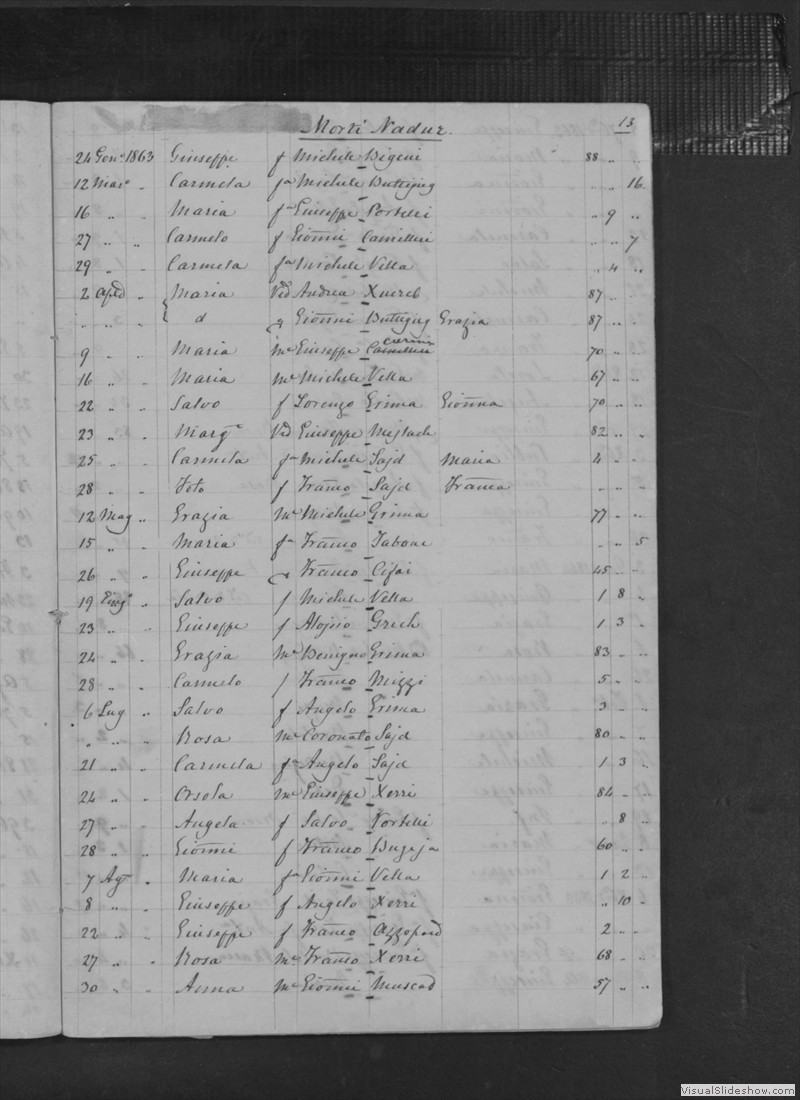 13
Morti Nadur.
24 Gen.º 1863 Giuseppe f Michele 88 " "
12 Mar.º " Carmela f.ª Michele Buttigieg " " 16
16 " " Maria f.ª Giuseppe Portelli " 9 "
27 " " Carmelo f Gioñni Camilleri " " 7
29 " " Carmela f.ª Michele Vella " 4 "
2 " Maria V.d Andrea Xuereb 87 " "
" " " d Gioñni Buttigieg Grazia 87 " "
9 " Maria M.e Giuseppe 70 " "
16 " " Maria M.e Michele Vella 67 " "
22 " " Salvo f Lorenzo Grima Gioñna 70 " "
23 " " Marg.ª V.d Giuseppe 82 " "
25 " " Carmela f.ª Michele Sajd Maria 4 " "
28 " " Feto f Franco Sajd Franca " " "
12 Mag " Grazia M.e Michele Grima 77 " "
15 " " Maria f.ª Franco Tabone " " 5
26 " " Giuseppe Franco 45 " "
19 Giug.º " Salvo f Michele Vella 1 8 "
23 " " Giuseppe f Aloisio Grech 1 3 "
24 " " Grazia M.e Benigno Grima 83 " "
28 " " Carmelo f Franco Mizzi 5 " "
6 Lug " Salvo f Angelo Grima 3 " "
" " " Rosa M.e Coronato Sajd 80 " "
21 " " Carmela f.ª Angelo Sajd 1 3 "
24 " " Orsola M.e Giuseppe Xerri 84 " "
27 " " Angela f Salvo Portelli " 8 "
28 " " Gioñni f Franco Bugeja 60 " "
7 Ag.º " Maria f.ª Gioñni Vella 1 2 "
8 " " Giuseppe f Angelo Xerri " 10 "
22 " " Giuseppe f Franco Azzopard 2 " "
27 " " Rosa M.e Franco Xerri 68 " "
30 " " Anna M.e Gioñni Muscad 57 " "
VisualSlideshow.com